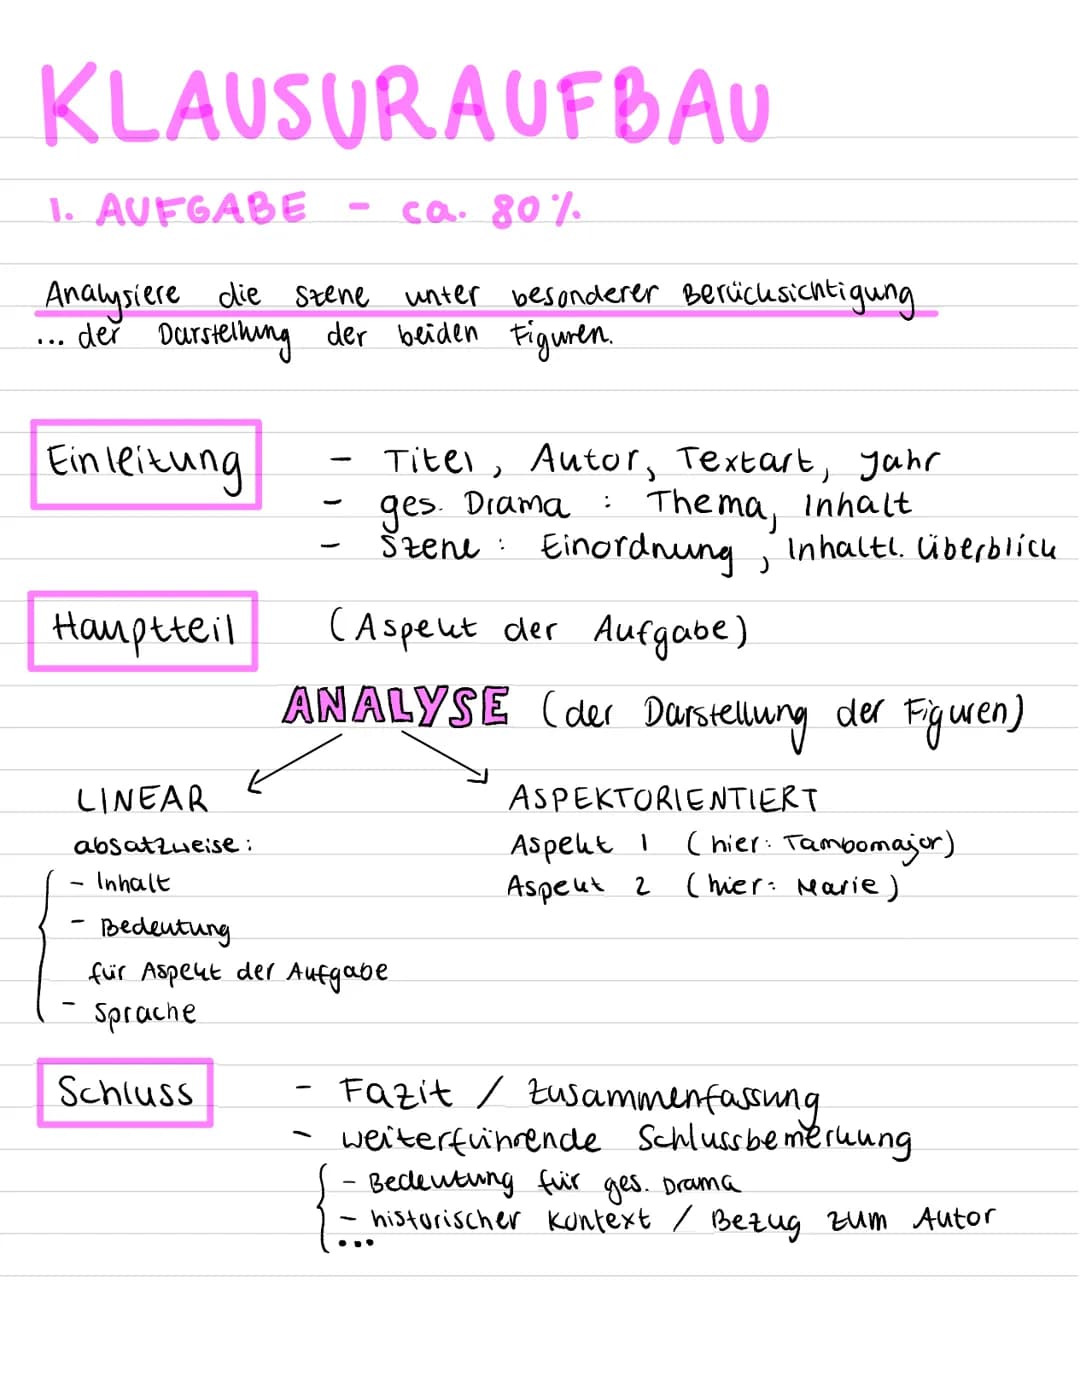 KLAUSURAUFBAU
1. AUFGABE - ca. 80%
Analysiere die Szene unter besonderer Berücksichtigung
... der Darstellung der beiden Figuren.
Einleitung
- Titel, Autor, Textart, Jahr
- ges. Drama : Thema, Inhalt
- Szene : Einordnung, Inhaltl. Überblick
Hauptteil (Aspekt der Aufgabe)
ANALYSE (der Darstellung der Figuren)
LINEAR
absatzweise:
- Inhalt
- Bedeutung
für Aspekt der Aufgabe
- Sprache
ASPEKTORIENTIERT
Aspekt 1 (hier: Tambomajor)
Aspekt 2 (hier: Marie)
Schluss
- Fazit / Zusammenfassung
- weiterführende Schlussbemerkung
- Bedeutung für ges. Drama
- historischer Kontext / Bezug zum Autor
...